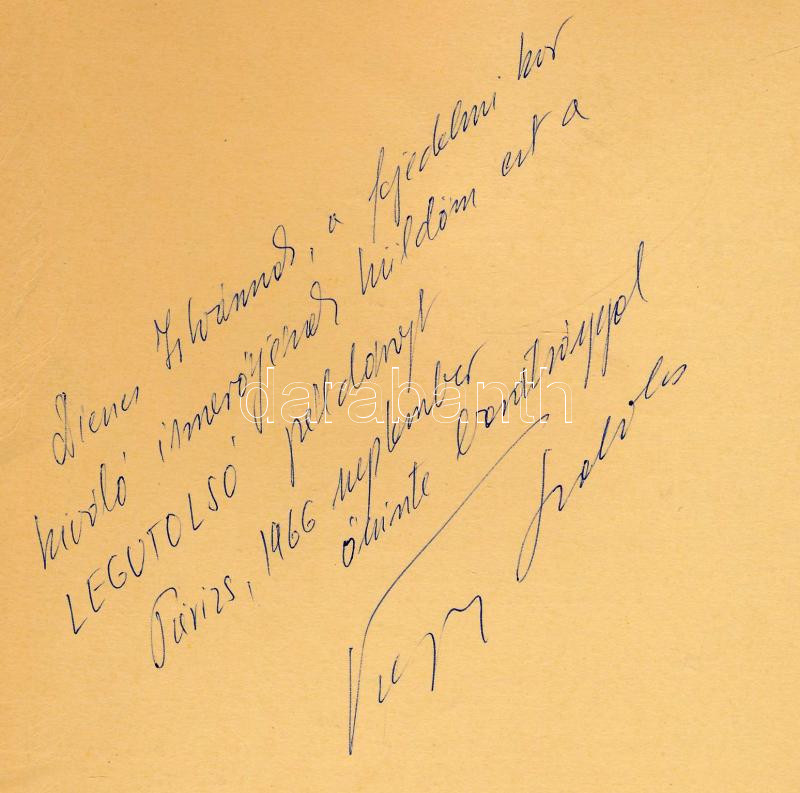 Dienes Istvánnak, a fejedelmi kor
kiváló ismerőjének küldöm ezt a
LEGUTOLSÓ példányt
Párizs, 1966 szeptember
őszinte barátsággal
Szabolcs
darabanth